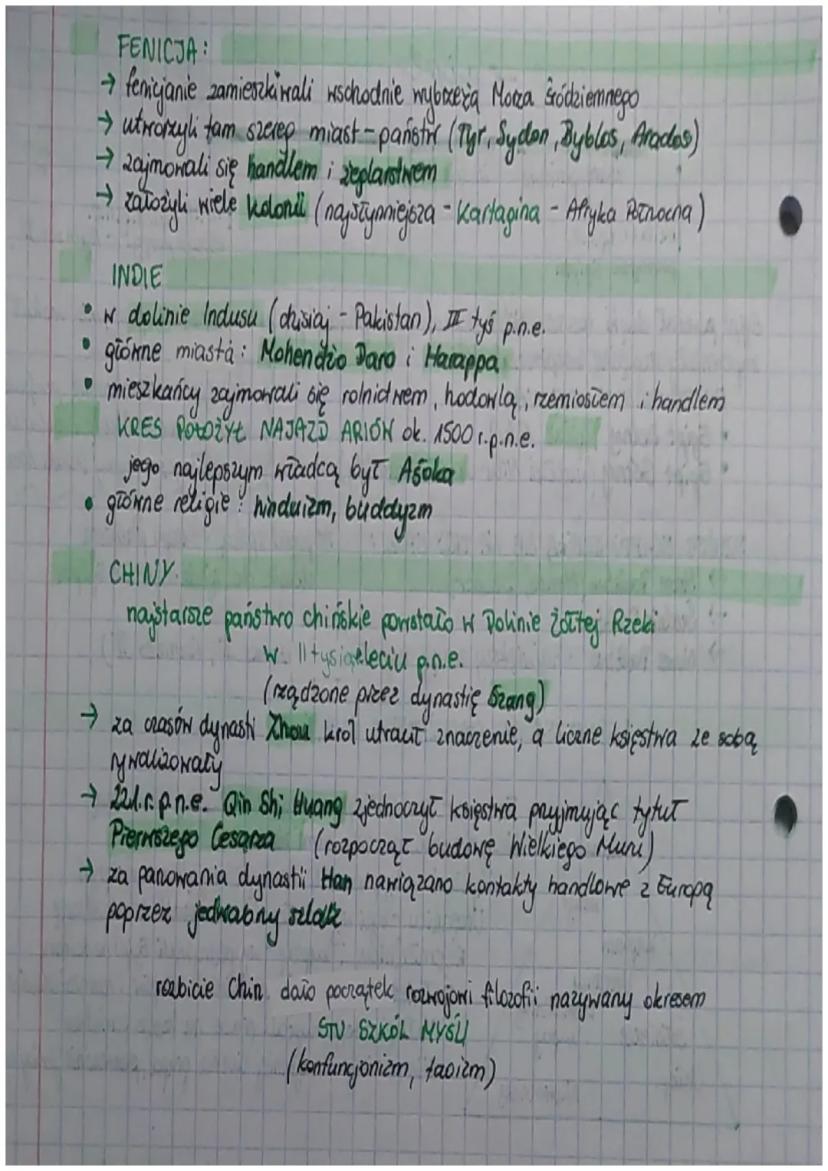 FENICJA:
→ fenicjanie zamieszkiwali wschodnie wybrzeża Morza Śródziemnego
→ utworzyli tam szereg miast-państw (Tyr, Sydon, Byblos, Arados)
→ zajmowali się handlem i żeglarstwem
→ założyli wiele kolonii (najsłynniejsza - Kartagina - Afryka Północna)
INDIE
• w dolinie Indusu (dzisiaj - Pakistan), III tyś p.n.e.
• główne miasta: Mohendżo Daro i Harappa
• mieszkańcy zajmowali się rolnictwem, hodowlą, rzemiosłem i handlem
KRES POŁOŻYŁ NAJAZD ARIÓW ok. 1500 r.p.n.e.
jego najlepszym władcą był Aśoka
• główne religie: hinduizm, buddyzm
CHINY
najstarsze państwo chińskie powstało w Dolinie Żółtej Rzeki
w II tysiącleciu p.n.e.
(rządzone przez dynastię Szang)
→ za czasów dynasti Zhou król utracił znaczenie, a liczne księstwa ze sobą
rywalizowały
→ 221.r.p.n.e. Qin Shi Huang zjednoczył księstwa przyjmując tytuł
Pierwszego Cesarza (rozpoczął budowę Wielkiego Muru)
→ za panowania dynastii Han nawiązano kontakty handlowe z Europą
poprzez jedwabny szlak
rozbicie Chin dało początek rozwojowi filozofii nazywany okresem
STU SZKÓŁ MYŚLI
(konfuncjonizm, taoizm)